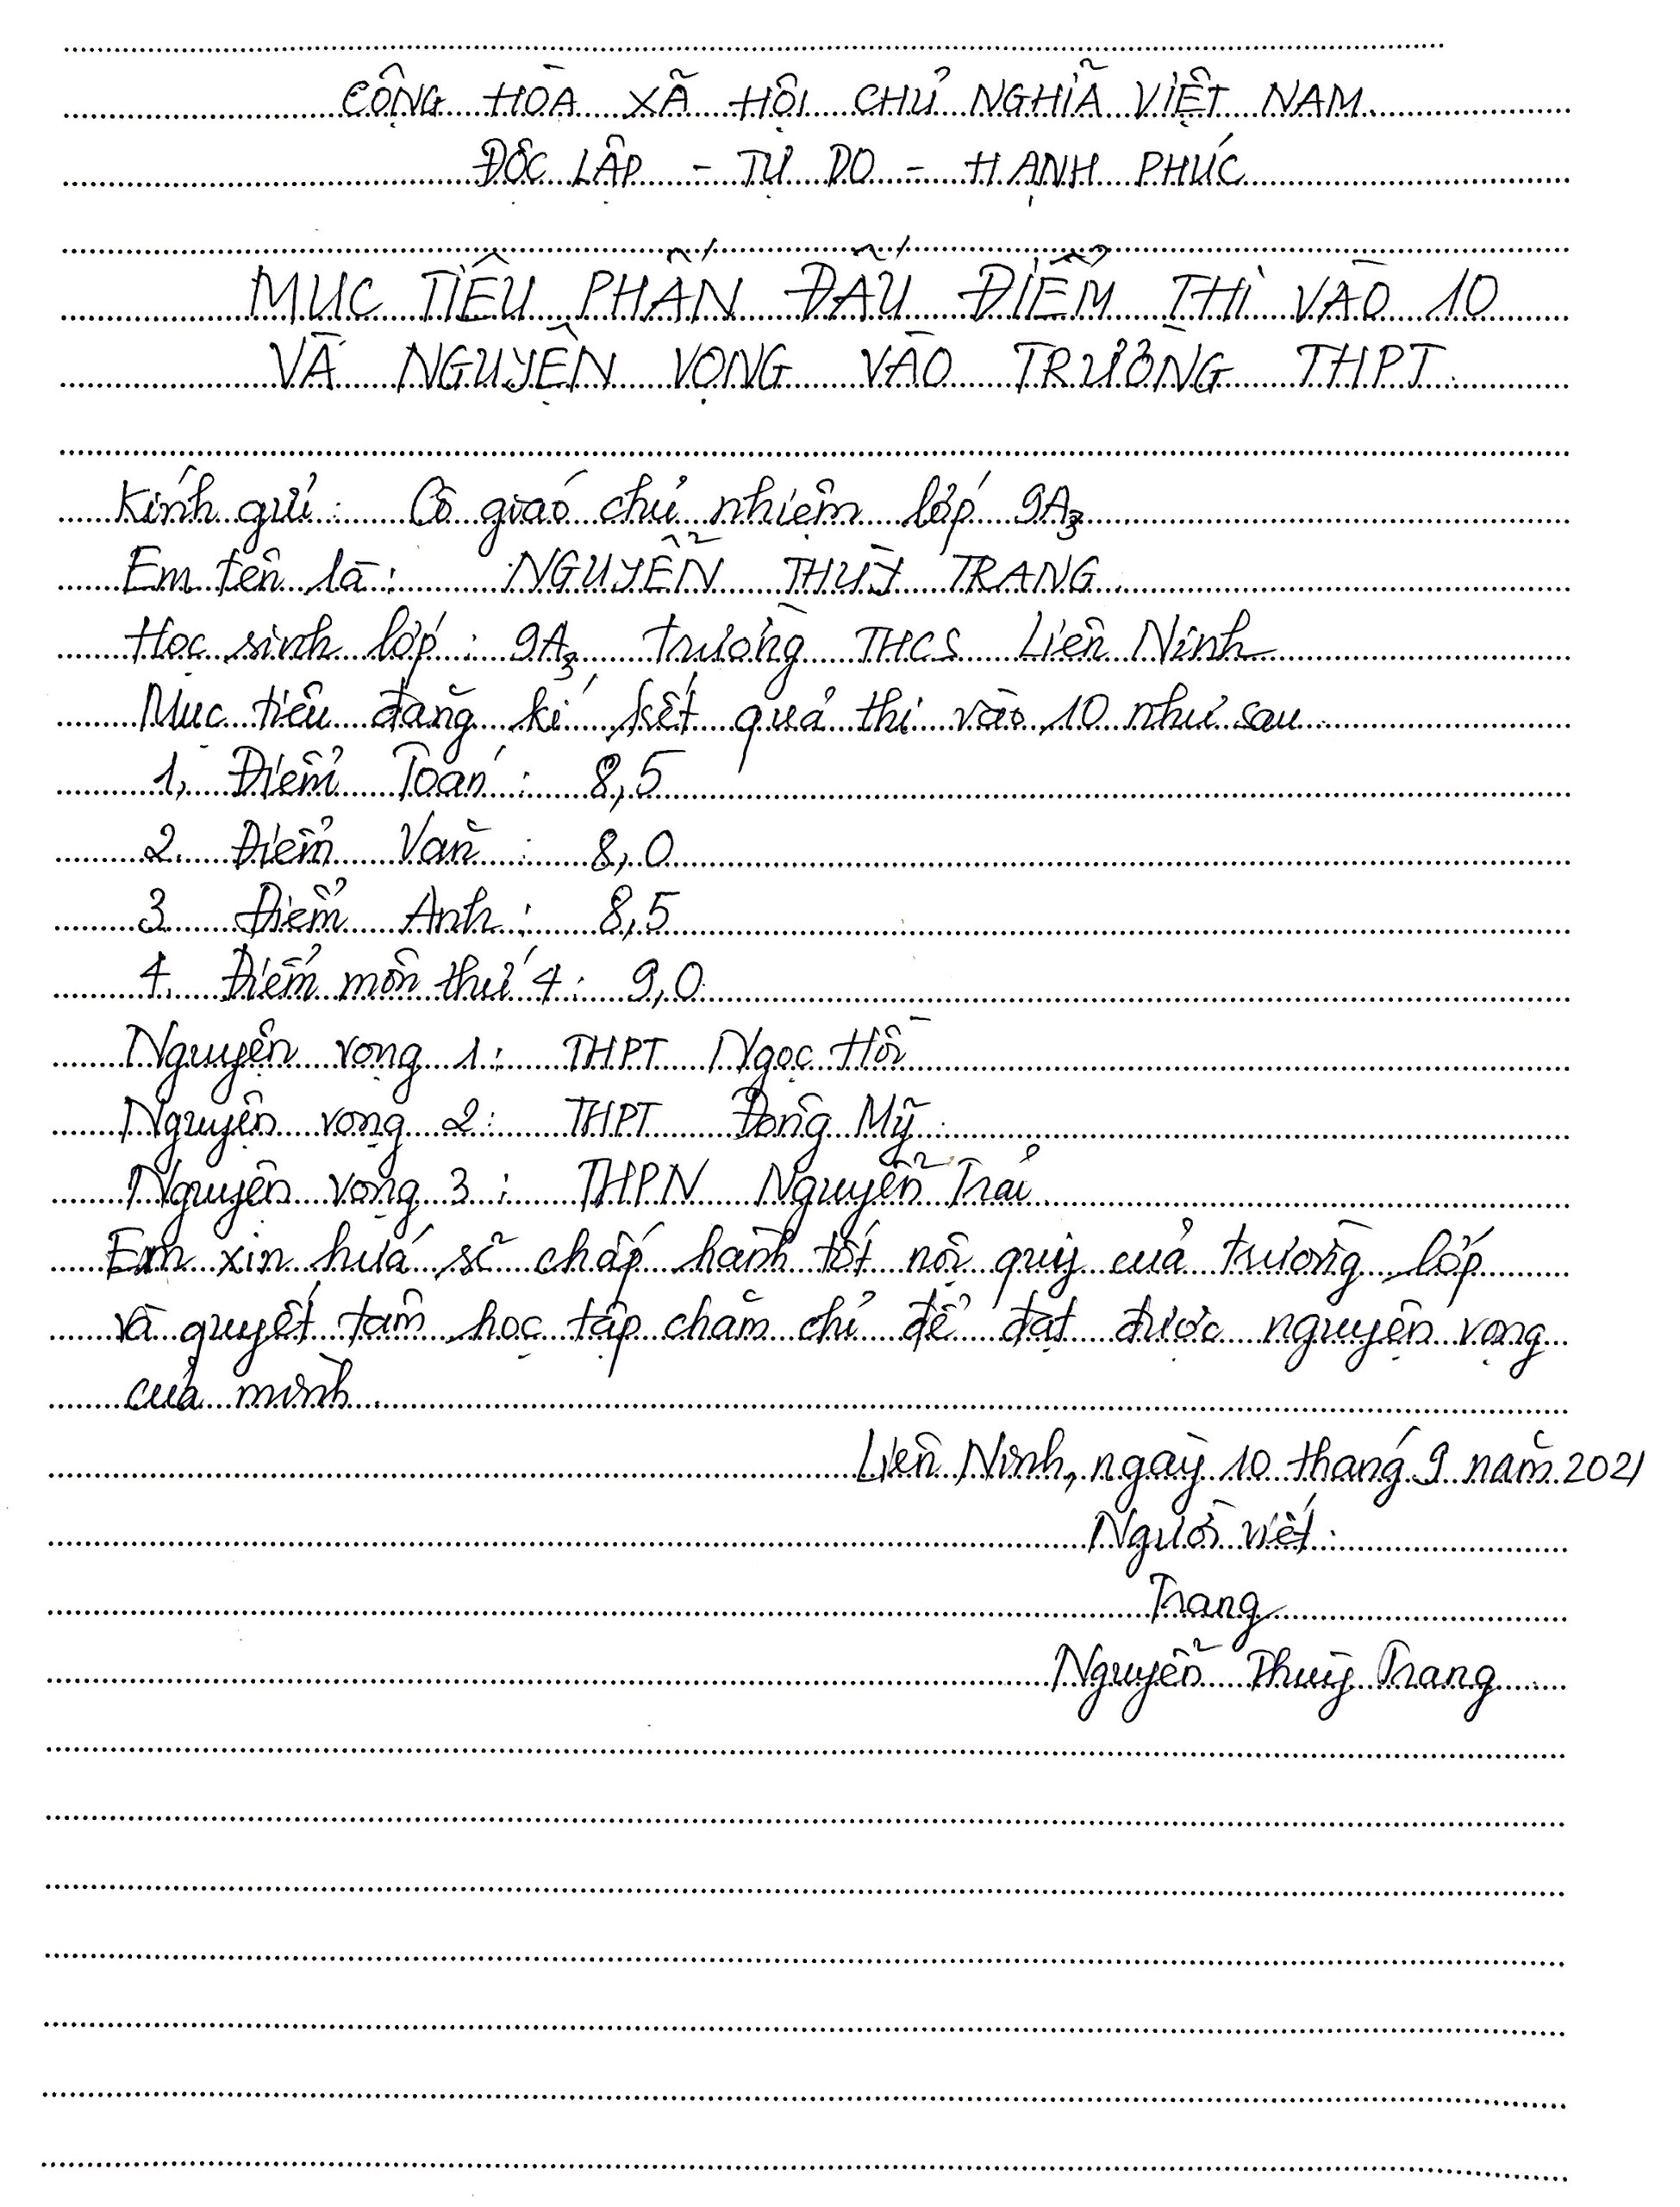 CỘNG HÒA XÃ HỘI CHỦ NGHĨA VIỆT NAM
ĐỘC LẬP - TỰ DO - HẠNH PHÚC
MỤC TIÊU PHẤN ĐẤU ĐIỂM THI VÀO 10
VÀ NGUYỆN VỌNG VÀO TRƯỜNG THPT
Kính gửi: Cô giáo chủ nhiệm lớp 9A3
Em tên là: NGUYỄN THUỲ TRANG
Học sinh lớp: 9A3 trường THCS Liên Ninh
Mục tiêu đăng kí kết quả thi vào 10 như sau
1, Điểm Toán: 8,5
2. Điểm Văn: 8,0
3 Điểm Anh: 8,5
4. Điểm môn thứ 4: 9,0
Nguyện vọng 1: THPT Ngọc Hồi
Nguyện vọng 2: THPT Đông Mỹ
Nguyện vọng 3: THPN Nguyễn Trải
Em xin hứa sẽ chấp hành tốt nội quy của trường lớp
và quyết tâm học tập chăm chỉ để đạt được nguyện vọng
của mình.
Liên Ninh, ngày 10 tháng 9 năm 2021
Người viết
Trang
Nguyễn Thuỳ Trang